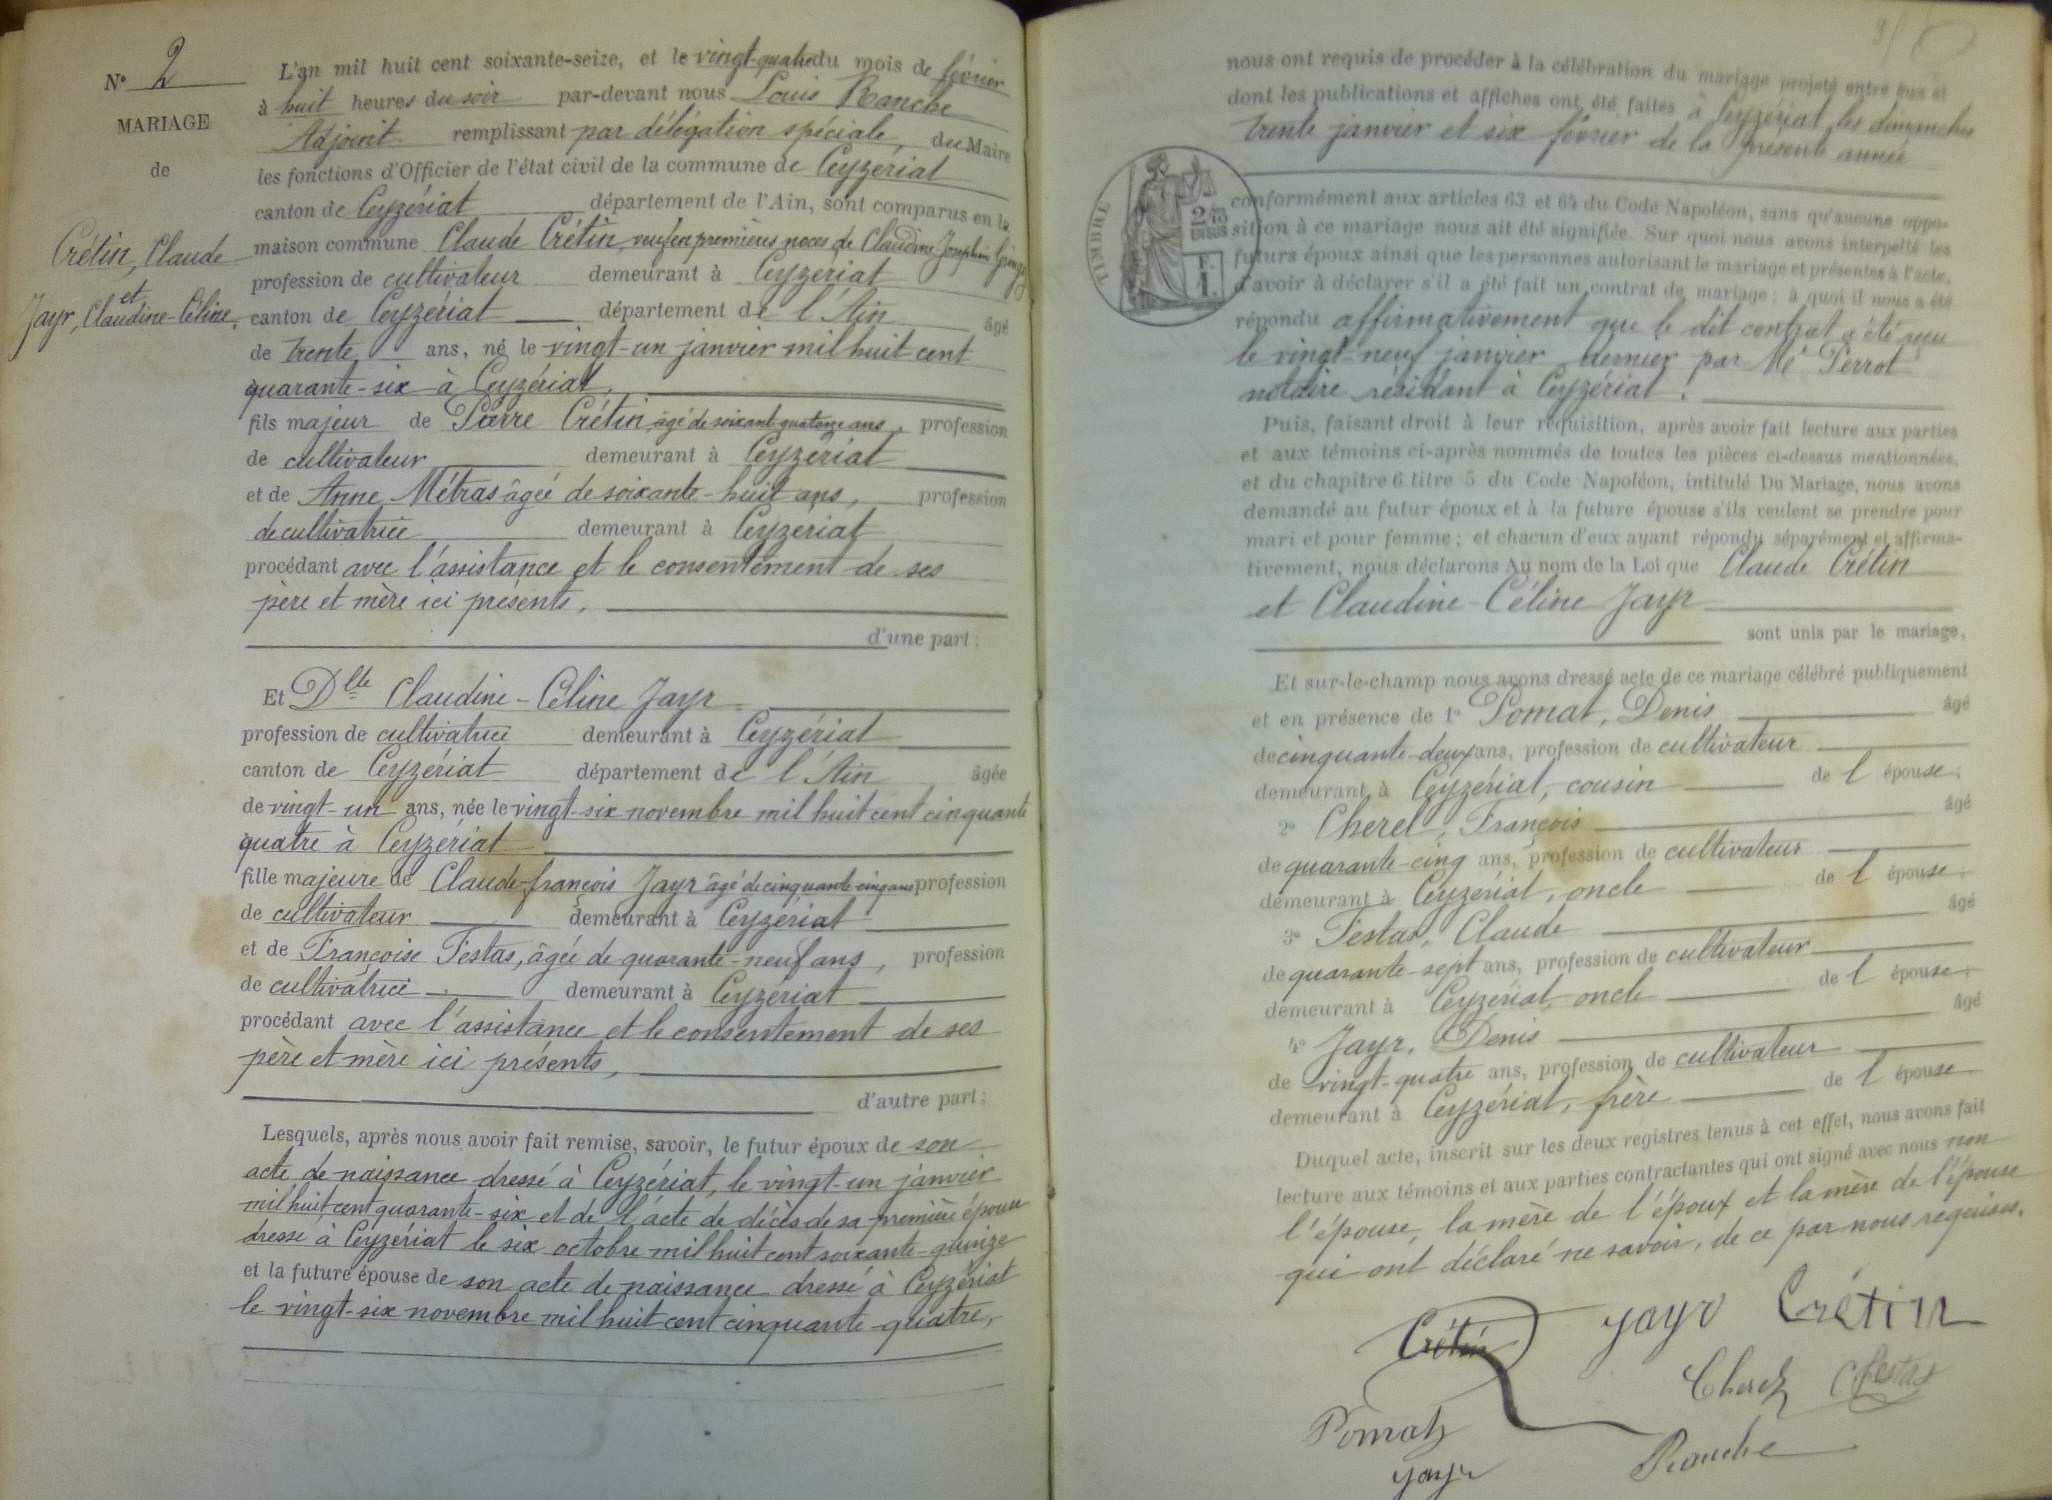 N° 2
MARIAGE
de
Crétin, Claude
et
Jayr, Claudine-Céline,
L'an mil huit cent soixante-seize, et le vingt-quatre du mois de février
à huit heures du soir par-devant nous Louis Ranche
Adjoint remplissant par délégation spéciale, du Maire
les fonctions d'Officier de l'état civil de la commune de Ceyzériat
canton de Ceyzériat département de l'Ain, sont comparus en la
maison commune Claude Crétin, veuf en premières noces de Claudine Joséphine
profession de cultivateur demeurant à Ceyzériat
canton de Ceyzériat département de l'Ain âgé
de trente ans, né le vingt-un janvier mil huit cent
quarante-six à Ceyzériat,
fils majeur de Pierre Crétin âgé de soixante-quatorze ans, profession
de cultivateur demeurant à Ceyzériat
et de Anne Métras âgée de soixante-huit ans, profession
de cultivatrice demeurant à Ceyzériat
procédant avec l'assistance et le consentement de ses
père et mère ici présents,
d'une part;
Et Dlle Claudine-Céline Jayr
profession de cultivatrice demeurant à Ceyzériat
canton de Ceyzériat département de l'Ain âgée
de vingt-un ans, née le vingt-six novembre mil huit cent cinquante
quatre à Ceyzériat
fille majeure de Claude-françois Jayr âgé de cinquante-cinq ans profession
de cultivateur demeurant à Ceyzériat
et de Françoise Festas, âgée de quarante-neuf ans, profession
de cultivatrice demeurant à Ceyzériat
procédant avec l'assistance et le consentement de ses
père et mère ici présents,
d'autre part;
Lesquels, après nous avoir fait remise, savoir, le futur époux de son
acte de naissance dressé à Ceyzériat, le vingt-un janvier
mil huit cent quarante-six et de l'acte de décès de sa première épouse
dressé à Ceyzériat le six octobre mil huit cent soixante-quinze
et la future épouse de son acte de naissance dressé à Ceyzériat
le vingt-six novembre mil huit cent cinquante-quatre,
nous ont requis de procéder à la célébration du mariage projeté entre eux et
dont les publications et affiches ont été faites à Ceyzériat les dimanches
trente janvier et six février de la présente année
TIMBRE
conformément aux articles 63 et 64 du Code Napoléon, sans qu'aucune oppo-
sition à ce mariage nous ait été signifiée. Sur quoi nous avons interpellé les
futurs époux ainsi que les personnes autorisant le mariage et présentes à l'acte,
d'avoir à déclarer s'il a été fait un contrat de mariage; à quoi il nous a été
répondu affirmativement que le dit contrat a été reçu
le vingt-neuf janvier dernier par Me Perrot
notaire résidant à Ceyzériat.
Puis, faisant droit à leur réquisition, après avoir fait lecture aux parties
et aux témoins ci-après nommés de toutes les pièces ci-dessus mentionnées,
et du chapitre 6 titre 5 du Code Napoléon, intitulé Du Mariage, nous avons
demandé au futur époux et à la future épouse s'ils veulent se prendre pour
mari et pour femme; et chacun d'eux ayant répondu séparément et affirma-
tivement, nous déclarons Au nom de la Loi que Claude Crétin
et Claudine-Céline Jayr
sont unis par le mariage,
Et sur-le-champ nous avons dressé acte de ce mariage célébré publiquement
et en présence de 1° Pomat, Denis âgé
de cinquante-deux ans, profession de cultivateur
demeurant à Ceyzériat, cousin de l'épouse;
2° Cherel, François âgé
de quarante-cinq ans, profession de cultivateur
demeurant à Ceyzériat, oncle de l'épouse;
3° Festas, Claude âgé
de quarante-sept ans, profession de cultivateur
demeurant à Ceyzériat, oncle de l'épouse;
4° Jayr, Denis âgé
de vingt-quatre ans, profession de cultivateur
demeurant à Ceyzériat, frère de l'épouse
Duquel acte, inscrit sur les deux registres tenus à cet effet, nous avons fait
lecture aux témoins et aux parties contractantes qui ont signé avec nous non
l'épouse, la mère de l'époux et la mère de l'épouse
qui ont déclaré ne savoir, de ce par nous requises.
Crétin jayr Crétin
Cherel Cfestas
Pomat
jayr Ranche